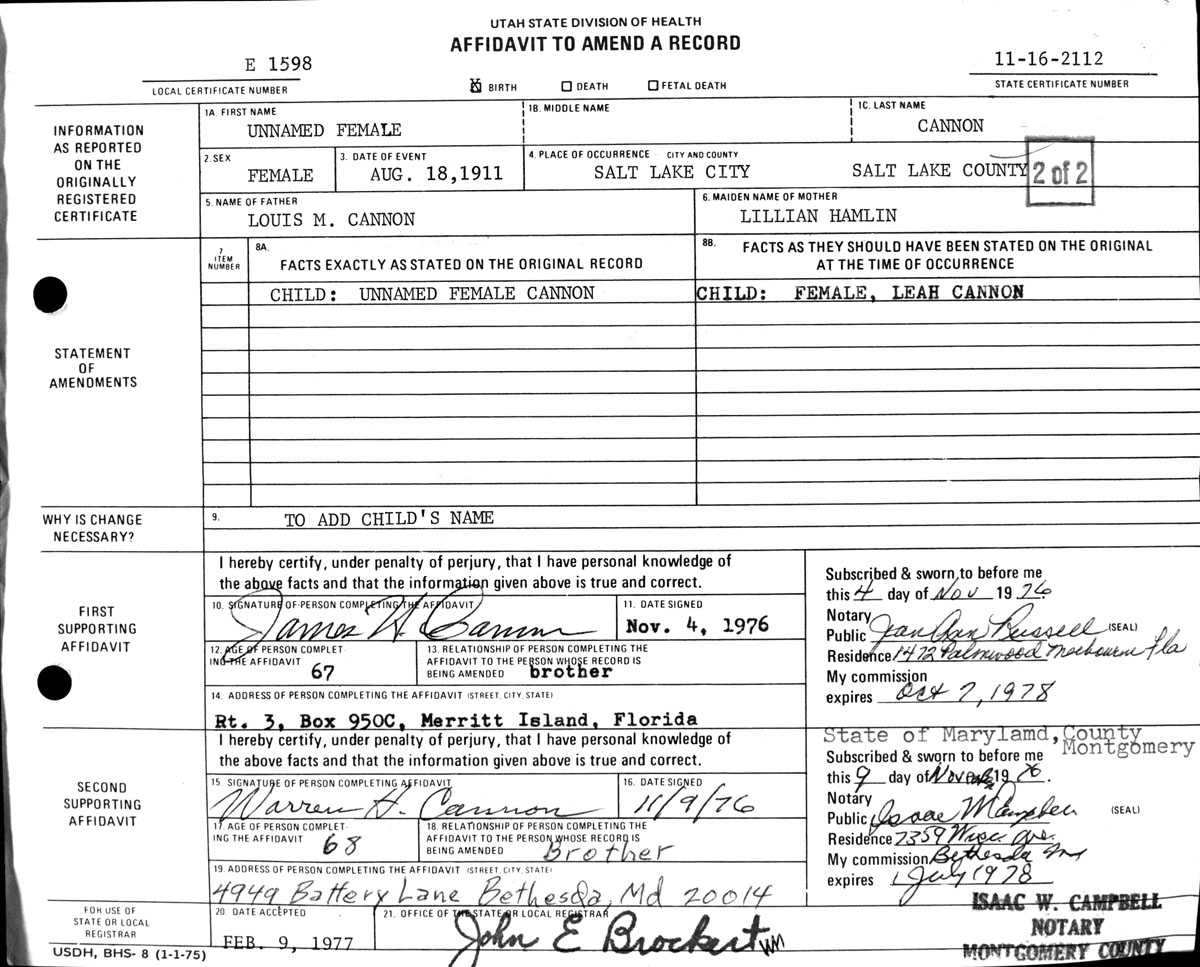 UTAH STATE DIVISION OF HEALTH
AFFIDAVIT TO AMEND A RECORD
E 1598
LOCAL CERTIFICATE NUMBER
☒ BIRTH ☐ DEATH ☐ FETAL DEATH
11-16-2112
STATE CERTIFICATE NUMBER
INFORMATION
AS REPORTED
ON THE
ORIGINALLY
REGISTERED
CERTIFICATE
1A. FIRST NAME
UNNAMED FEMALE
1B. MIDDLE NAME
1C. LAST NAME
CANNON
2. SEX
FEMALE
3. DATE OF EVENT
AUG. 18,1911
4. PLACE OF OCCURRENCE CITY AND COUNTY
SALT LAKE CITY SALT LAKE COUNTY
2 of 2
5. NAME OF FATHER
LOUIS M. CANNON
6. MAIDEN NAME OF MOTHER
LILLIAN HAMLIN
STATEMENT
OF
AMENDMENTS
7
ITEM
NUMBER
8A.
FACTS EXACTLY AS STATED ON THE ORIGINAL RECORD
8B. FACTS AS THEY SHOULD HAVE BEEN STATED ON THE ORIGINAL
AT THE TIME OF OCCURRENCE
CHILD: UNNAMED FEMALE CANNON
CHILD: FEMALE, LEAH CANNON
WHY IS CHANGE
NECESSARY?
9. TO ADD CHILD'S NAME
FIRST
SUPPORTING
AFFIDAVIT
I hereby certify, under penalty of perjury, that I have personal knowledge of
the above facts and that the information given above is true and correct.
10. SIGNATURE OF PERSON COMPLETING THE AFFIDAVIT
James H. Cannon
11. DATE SIGNED
Nov. 4, 1976
12. AGE OF PERSON COMPLET-
ING THE AFFIDAVIT
67
13. RELATIONSHIP OF PERSON COMPLETING THE
AFFIDAVIT TO THE PERSON WHOSE RECORD IS
BEING AMENDED brother
14. ADDRESS OF PERSON COMPLETING THE AFFIDAVIT (STREET, CITY, STATE)
Rt. 3, Box 950C, Merritt Island, Florida
Subscribed & sworn to before me
this 4 day of Nov 1976
Notary
Public Jean Ann Russell (SEAL)
Residence 1472 Palmwood Melbourne Fla
My commission
expires Oct 7, 1978
SECOND
SUPPORTING
AFFIDAVIT
I hereby certify, under penalty of perjury, that I have personal knowledge of
the above facts and that the information given above is true and correct.
15. SIGNATURE OF PERSON COMPLETING AFFIDAVIT
Warren H. Cannon
16. DATE SIGNED
11/9/76
17. AGE OF PERSON COMPLET-
ING THE AFFIDAVIT
68
18. RELATIONSHIP OF PERSON COMPLETING THE
AFFIDAVIT TO THE PERSON WHOSE RECORD IS
BEING AMENDED Brother
19. ADDRESS OF PERSON COMPLETING THE AFFIDAVIT (STREET, CITY, STATE)
4949 Battery Lane Bethesda, Md 20014
State of Marylamd, County
Montgomery
Subscribed & sworn to before me
this 9 day of November 1976.
Notary
Public Isaac W Campbell (SEAL)
Residence 7359 Ave.
My commission Bethesda Md
expires 1 July 1978
ISAAC W. CAMPBELL
NOTARY
MONTGOMERY COUNTY
FOR USE OF
STATE OR LOCAL
REGISTRAR
20. DATE ACCEPTED
FEB. 9, 1977
21. OFFICE OF THE STATE OR LOCAL REGISTRAR
John E Brockert
USDH, BHS- 8 (1-1-75)